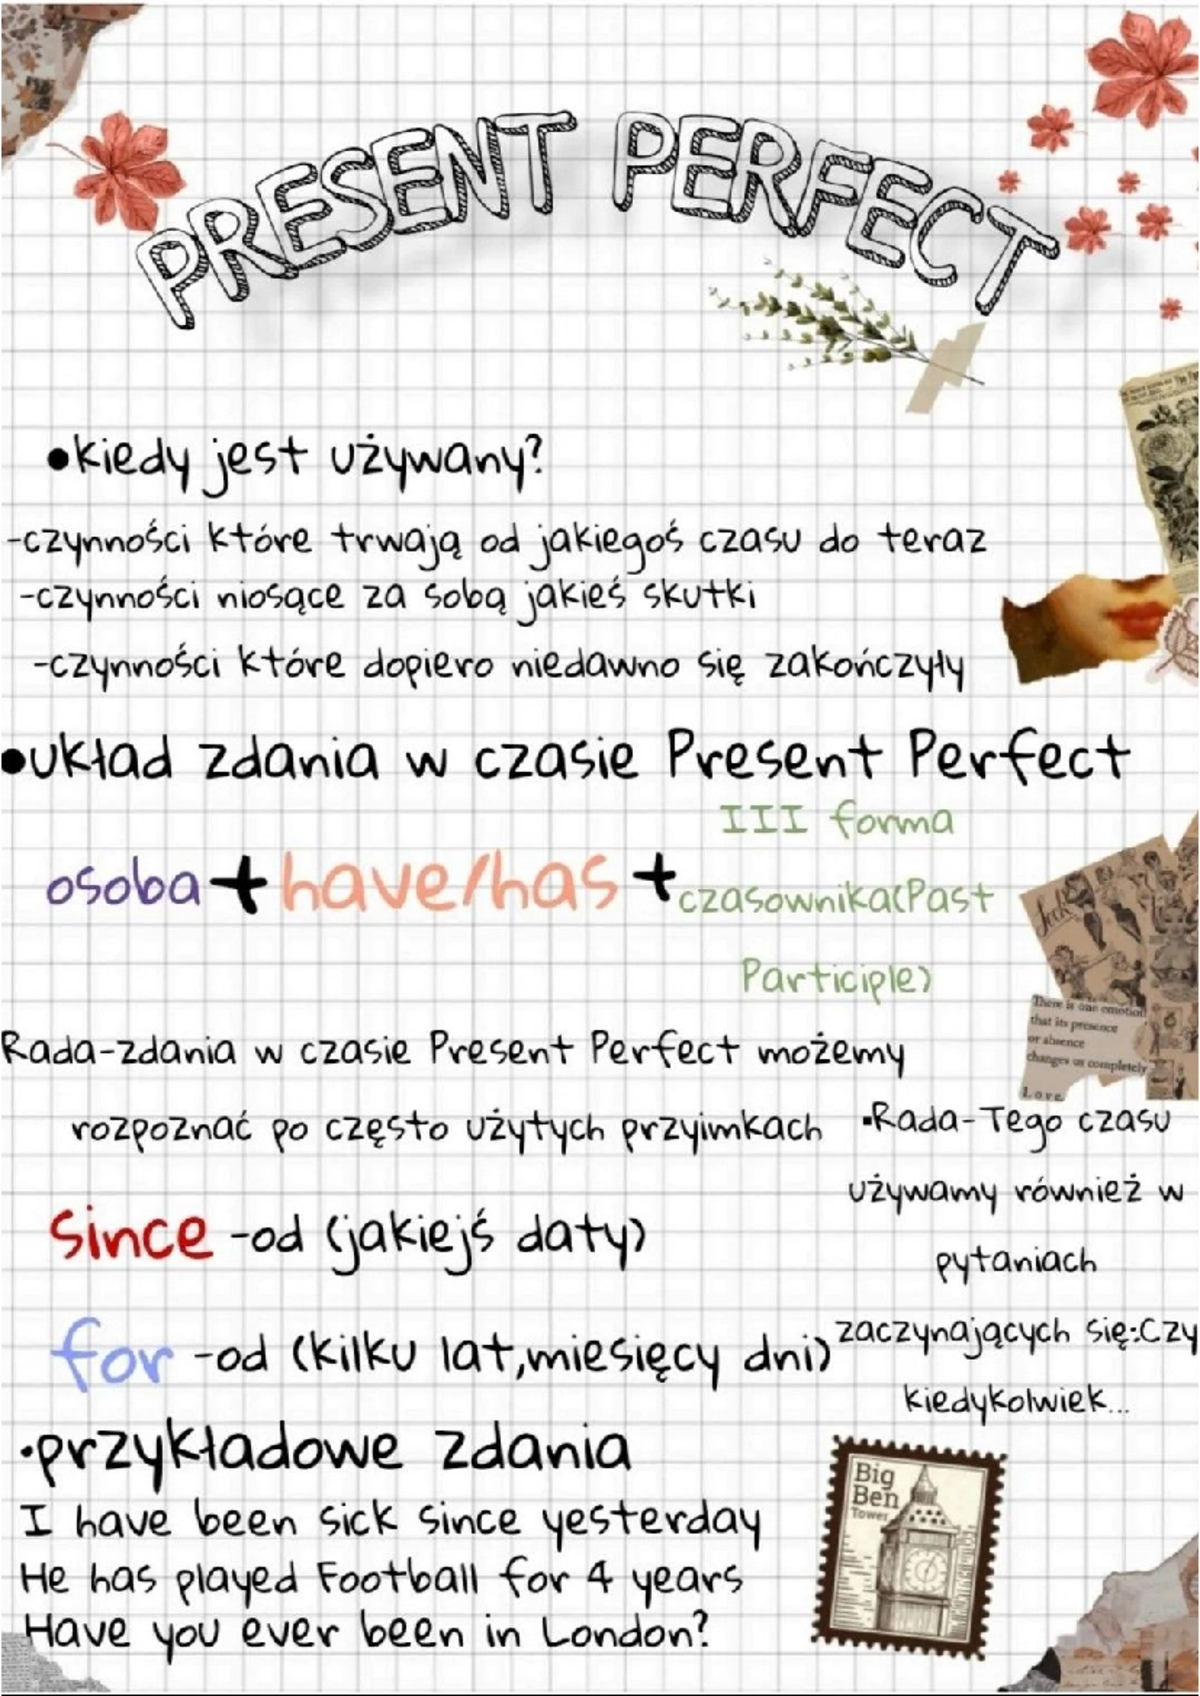 PRESENT PERFECT
•kiedy jest używany?
-czynności które trwają od jakiegoś czasu do teraz
-czynności niosące za sobą jakieś skutki
-czynności które dopiero niedawno się zakończyły
•układ zdania w czasie Present Perfect
osoba + have/has + III forma
czasownika(Past
Participle)
There is one emotion
that its presence
or absence
changes us completely
Love
Rada-zdania w czasie Present Perfect możemy
rozpoznać po często użytych przyimkach
since -od (jakiejś daty)
for -od (kilku lat,miesięcy dni)
•Rada-Tego czasu
używamy również w
pytaniach
zaczynających się:Czy
kiedykolwiek...
•przykładowe zdania
I have been sick since yesterday
He has played Football for 4 years
Have you ever been in London?
Big
Ben
Tower